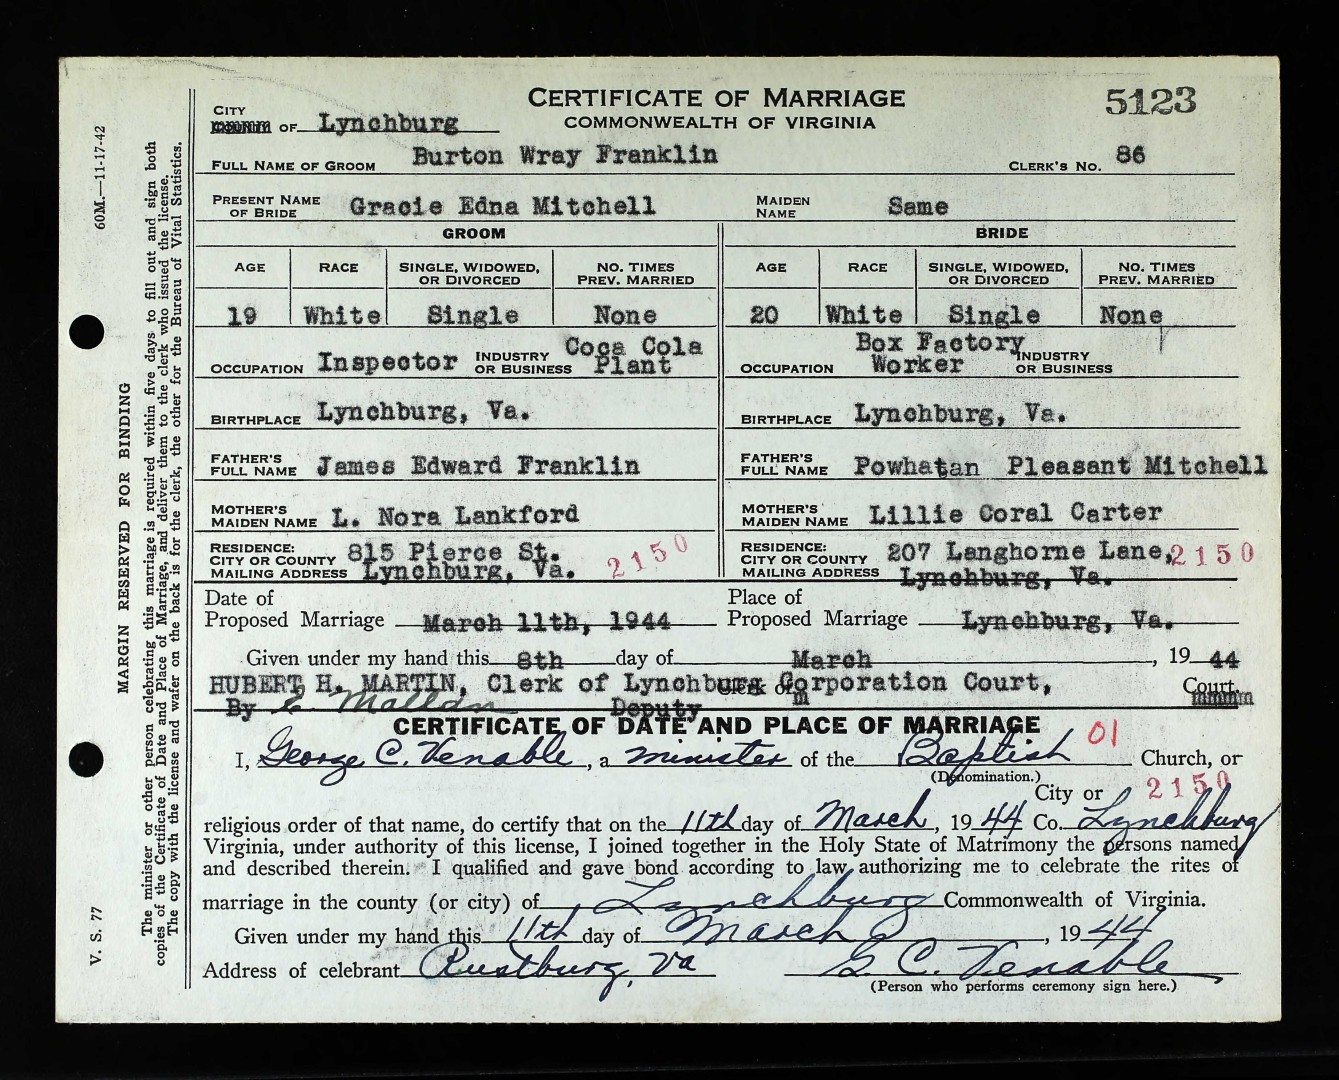 CERTIFICATE OF MARRIAGE
COMMONWEALTH OF VIRGINIA
5123
CITY
COUNTY OF Lynchburg
FULL NAME OF GROOM Burton Wray Franklin CLERK'S NO. 86
PRESENT NAME OF BRIDE Gracie Edna Mitchell MAIDEN NAME Same
GROOM BRIDE
AGE RACE SINGLE, WIDOWED, OR DIVORCED NO. TIMES PREV. MARRIED AGE RACE SINGLE, WIDOWED, OR DIVORCED NO. TIMES PREV. MARRIED
19 White Single None 20 White Single None
OCCUPATION Inspector INDUSTRY OR BUSINESS Coca Cola Plant OCCUPATION Box Factory Worker INDUSTRY OR BUSINESS
BIRTHPLACE Lynchburg, Va. BIRTHPLACE Lynchburg, Va.
FATHER'S FULL NAME James Edward Franklin FATHER'S FULL NAME Powhatan Pleasant Mitchell
MOTHER'S MAIDEN NAME L. Nora Lankford MOTHER'S MAIDEN NAME Lillie Coral Carter
RESIDENCE: CITY OR COUNTY MAILING ADDRESS 815 Pierce St. Lynchburg, Va. 2150 RESIDENCE: CITY OR COUNTY MAILING ADDRESS 207 Langhorne Lane, Lynchburg, Va. 2150
Date of Proposed Marriage March 11th, 1944 Place of Proposed Marriage Lynchburg, Va.
Given under my hand this 8th day of March, 1944
HUBERT H. MARTIN, Clerk of Lynchburg Corporation Court, Clerk of Court.
By Deputy
CERTIFICATE OF DATE AND PLACE OF MARRIAGE 01
I, George C. Venable, a minister of the Baptist Church, or
(Denomination.)
City or 2150
religious order of that name, do certify that on the 11th day of March, 1944 Co. Lynchburg
Virginia, under authority of this license, I joined together in the Holy State of Matrimony the persons named
and described therein. I qualified and gave bond according to law authorizing me to celebrate the rites of
marriage in the county (or city) of Lynchburg Commonwealth of Virginia.
Given under my hand this 11th day of March, 1944
Address of celebrant Rustburg, Va G. C. Venable
(Person who performs ceremony sign here.)
60M.—11-17-42
MARGIN RESERVED FOR BINDING
V. S. 77
The minister or other person celebrating this marriage is required within five days to fill out and sign both
copies of the Certificate of Date and Place of Marriage, and deliver them to the clerk who issued the license.
The copy with the license and wafer on the back is for the clerk, the other for the Bureau of Vital Statistics.